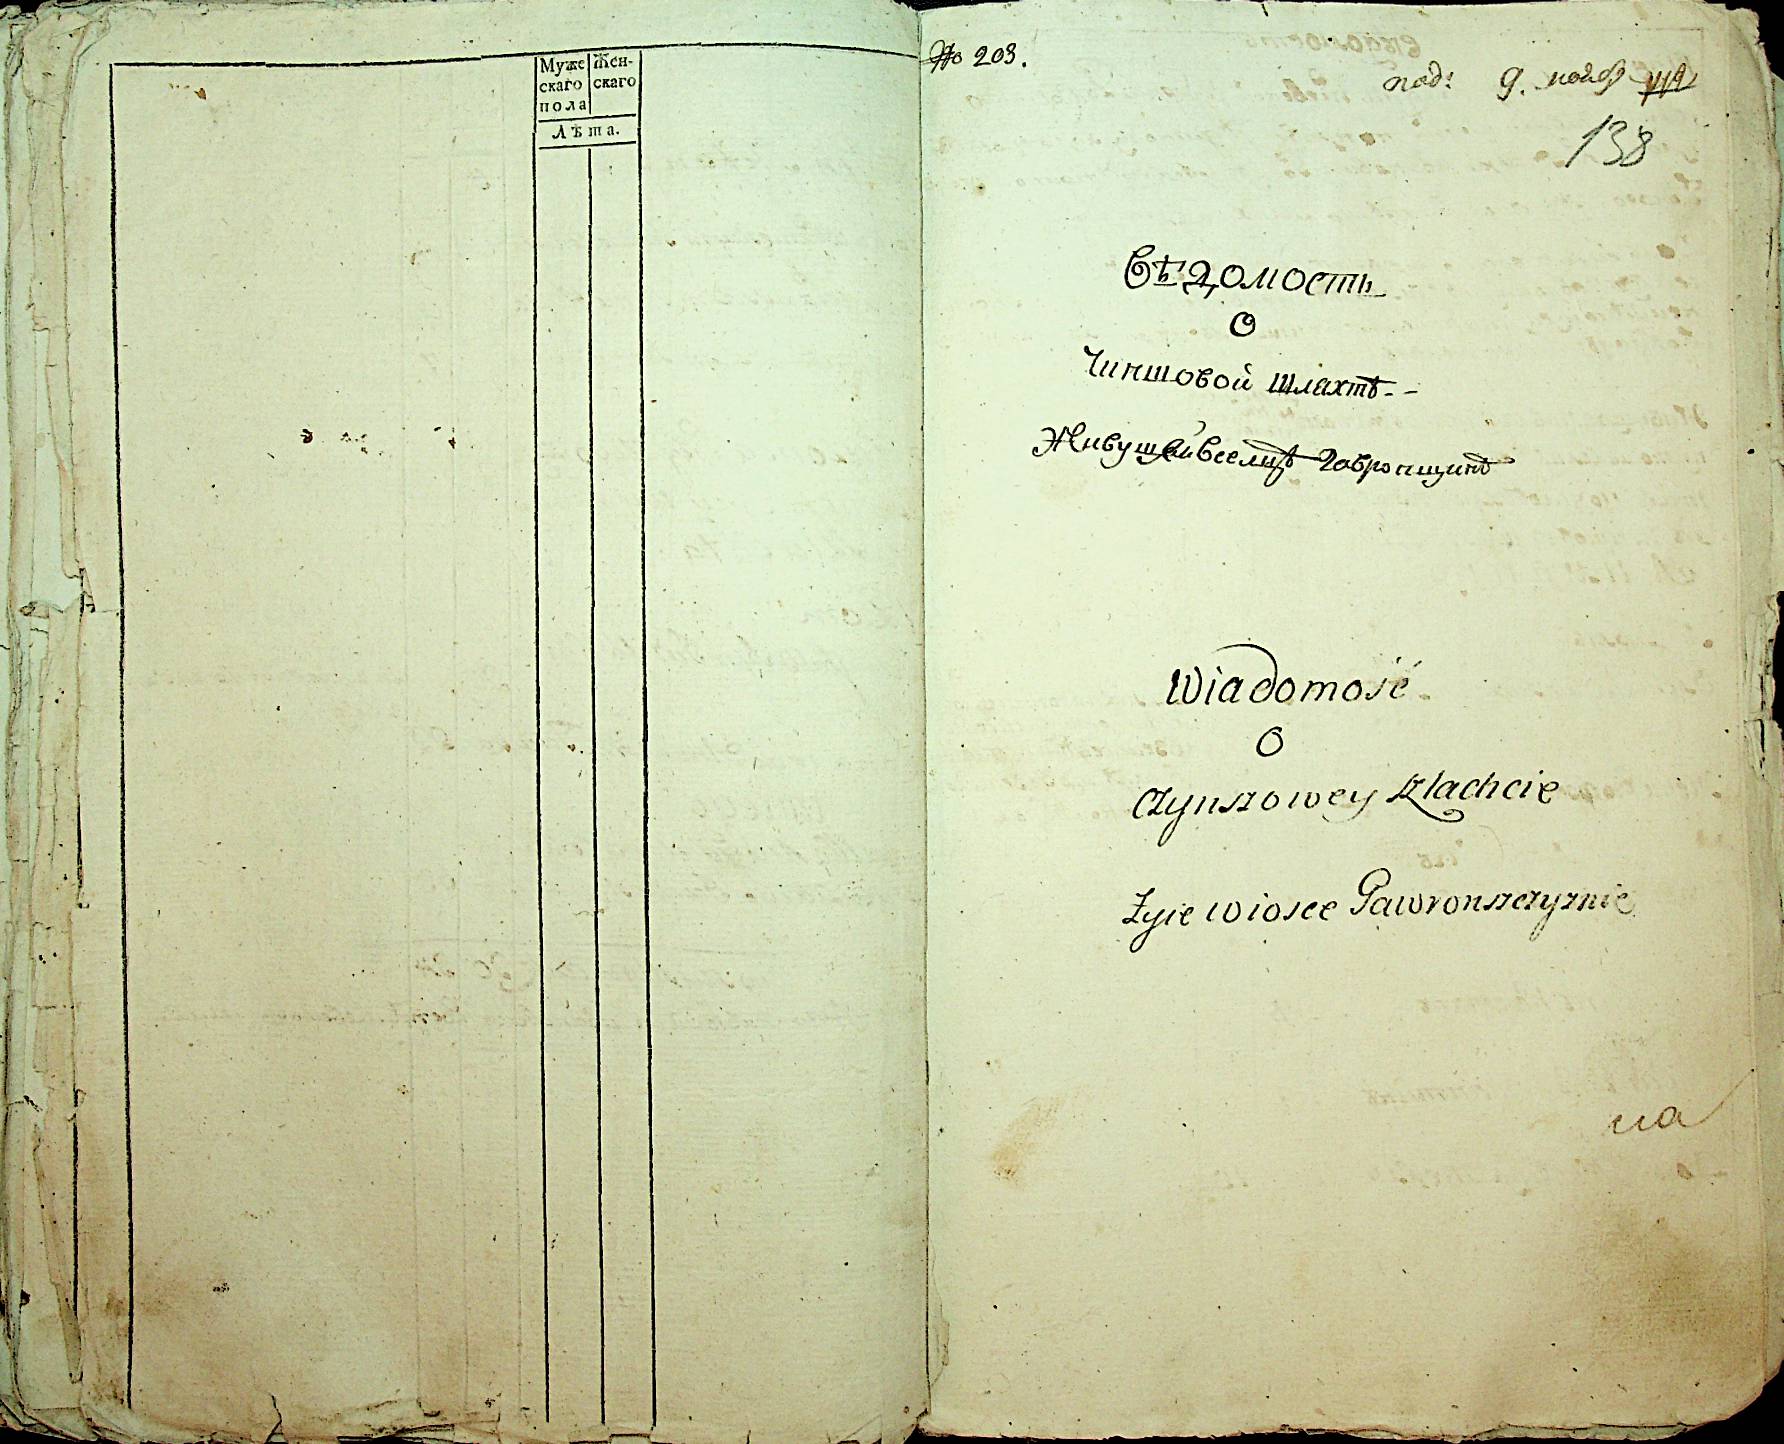 Муже
скаго
пола
Жен-
скаго
Лѣта.
№ 203.
под: 9. ноя
138
Вѣдомость
О
Чиншовой шлахтѣ--
Живущей вселцѣ Гавронщинѣ
Wiadomość
O
Czynszowey szlachcie
Żyie wiosce Gawronszczyznie